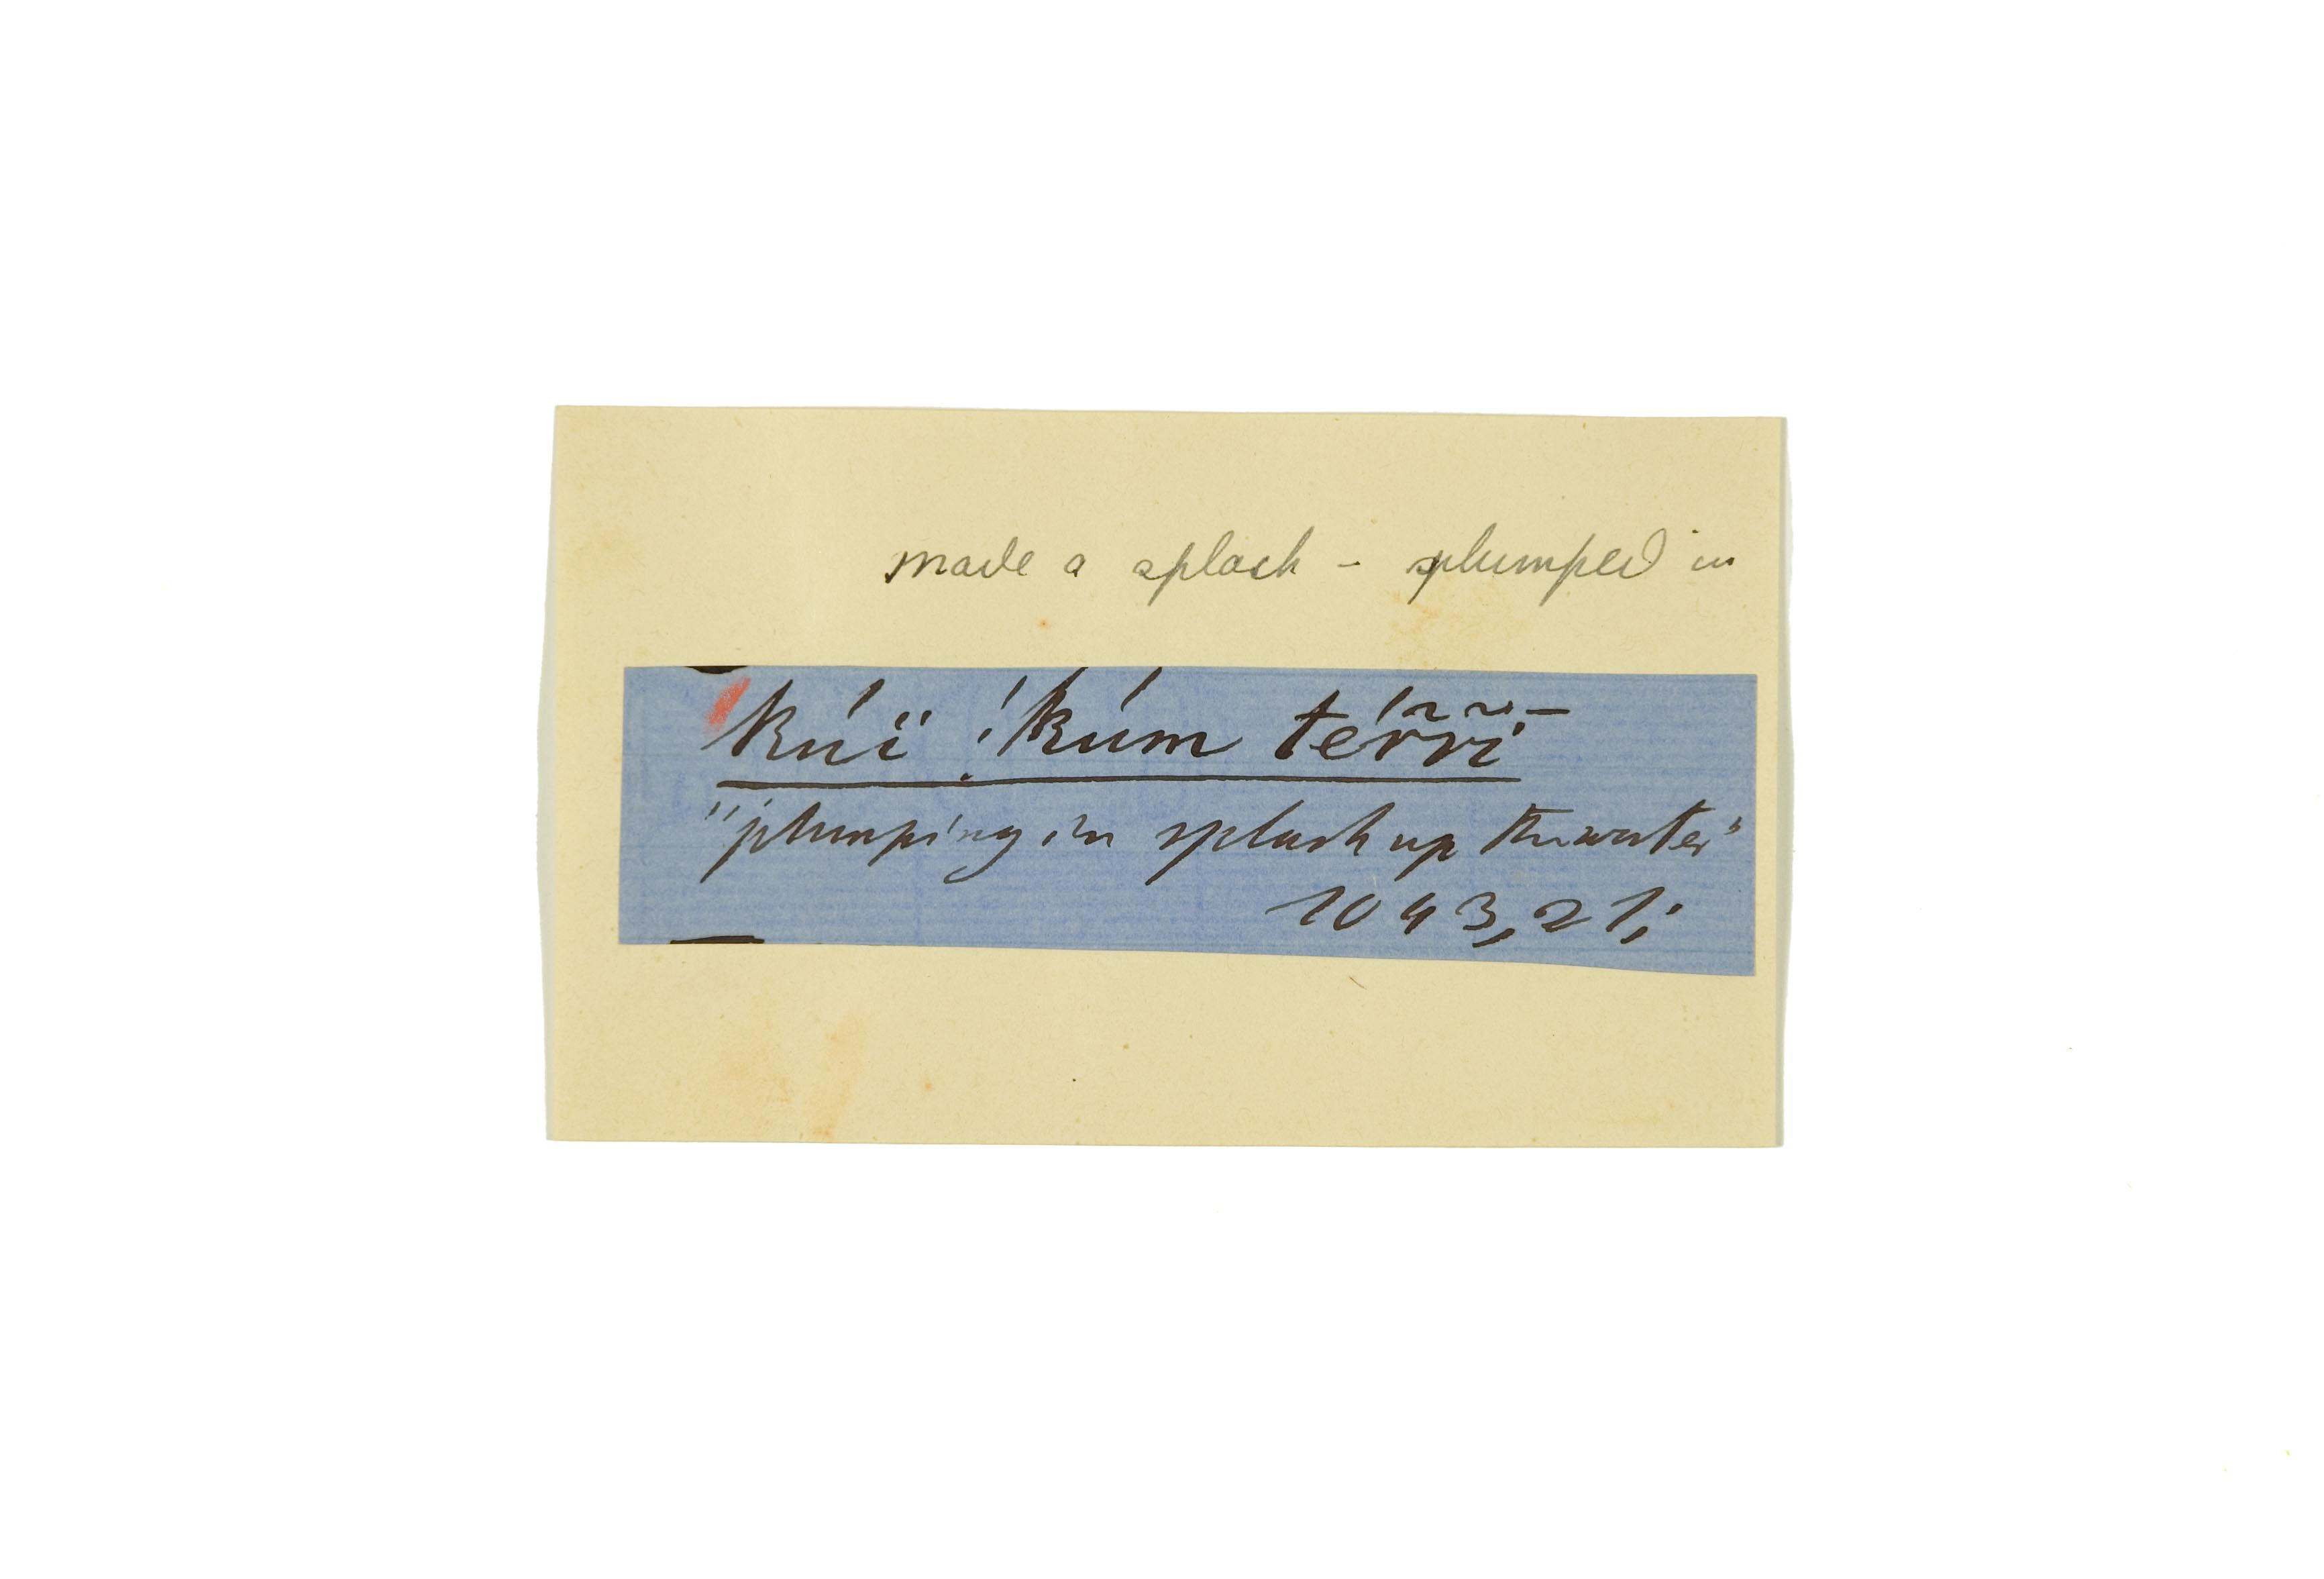 made a splash - plumped in
kúï !kúm térr̃ĩ
"plumping in splash up the water"
1043,21;